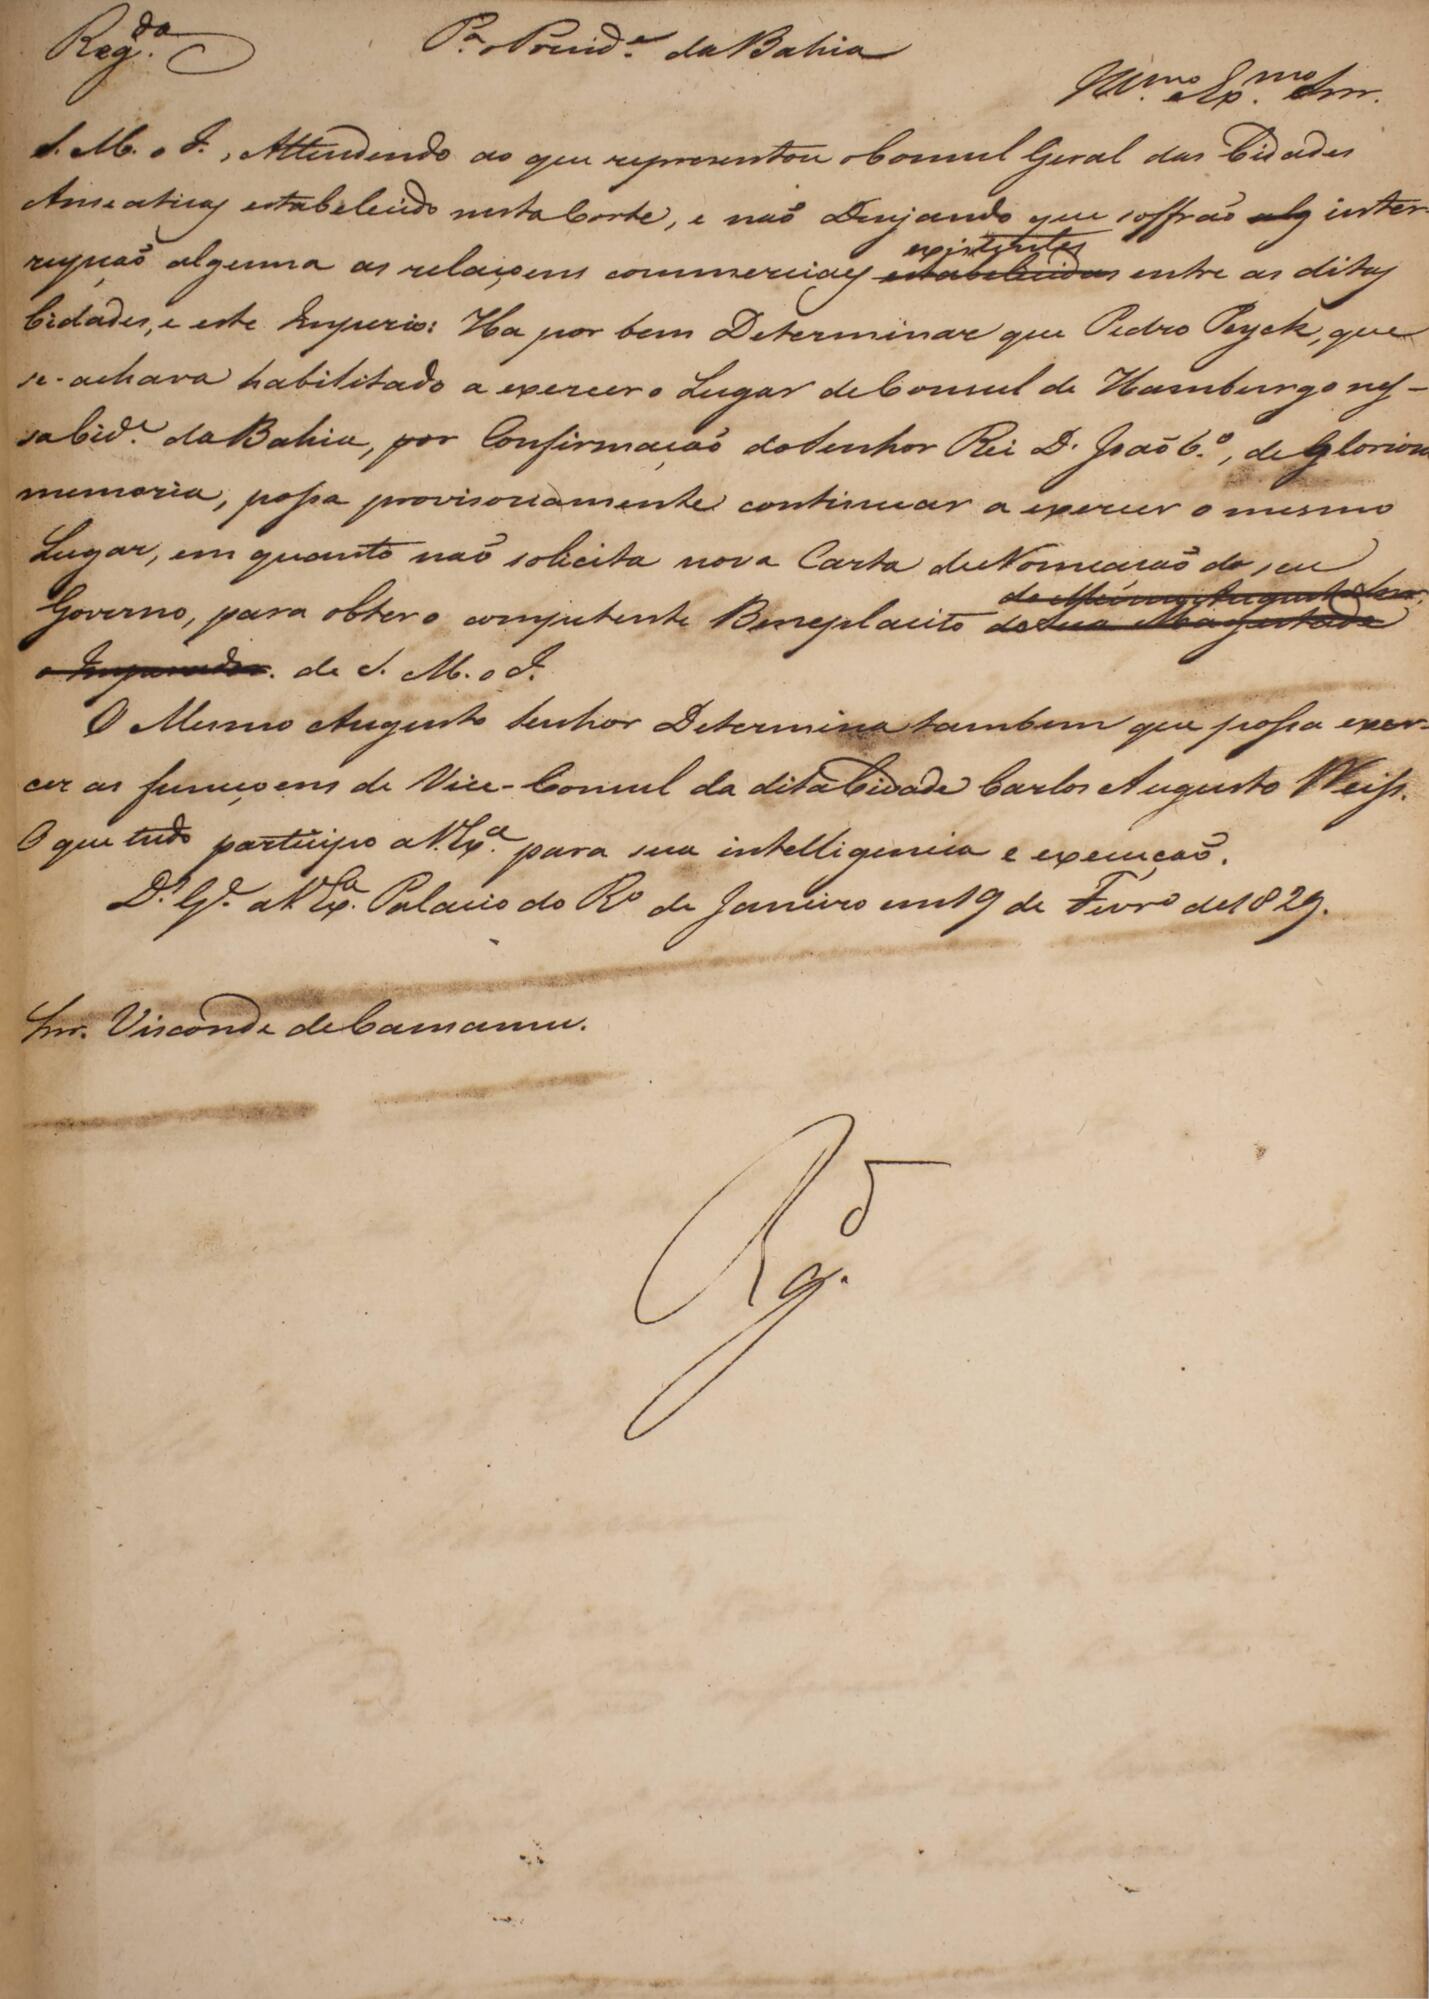 Reg.da
P.a o Presid.e da Bahia
Ill.mo e Ex.mo Snr.
S. M. o I., Attendendo ao que representou o Consul Geral das Cidades
Anseaticas estabelecido nesta Corte, e não Desejando que soffrão alg inter-
rupção alguma as relaçoens commerciaes estabelecidas existentes entre as ditas
Cidades, e este Imperio: Ha por bem Determinar que Pedro Peyck, que
se-achava habilitado a exercer o Lugar de Consul de Hamburgo nes-
sa Cid.e da Bahia, por Confirmação do Senhor Rei D. João 6.º, de Gloriosa
memoria, possa provisoriamente continuar a exercer o mesmo
Lugar, em quanto não solicita nova Carta de Nomeação do seu
Governo, para obter o competente Beneplacito de Sua Magestade do Mesmo Augusto Snr.
o Imperador. de S. M. o I.
O Mesmo Augusto Senhor Determina tambem que possa exer-
cer as funçoens de Vice-Consul da dita Cidade Carlos Augusto Weiss.
O que tudo participo a V. Ex.a para sua intelligencia e execução.
D.s G.e a V. Ex.a Palacio do R.o de Janeiro em 19 de Fevr.o de 1829.
Snr. Visconde de Camamu.
Rg.d